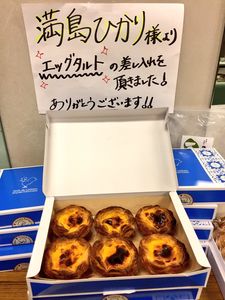 満島ひかり様より
エッグタルトの差し入れを
頂きました!
ありがとうございます!!